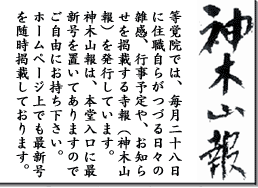 神木山報
等覚院では、毎月二十八日
に住職自らがつづる日々の
雑感、行事予定や、お知ら
せを掲載する寺報（神木山
報）を発行しています。
神木山報は、本堂入口に最
新号を置いてありますので
ご自由にお持ち下さい。
ホームページ上でも最新号
を随時掲載しております。